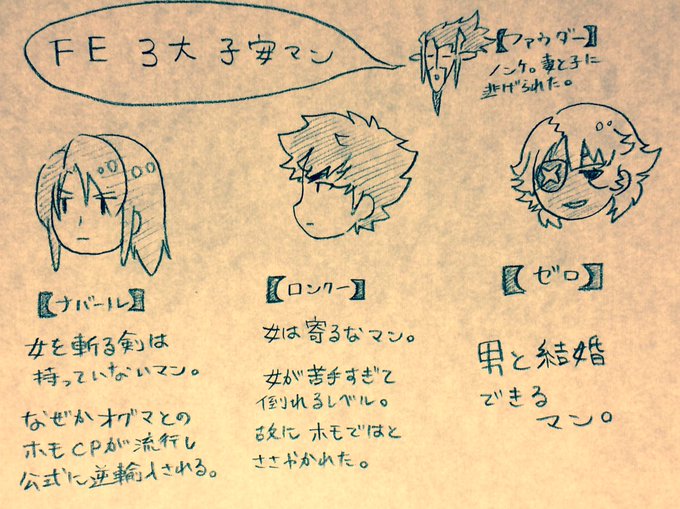 FE 3大 子安マン
【ファウダー】
ノンケ。妻と子に
逃げられた。
【ナバール】
女を斬る剣は
持っていないマン。
なぜかオグマとの
ホモCPが流行し
公式に逆輸入される。
【ロンクー】
女は寄るなマン。
女が苦手すぎて
倒れるレベル。
故にホモではと
ささやかれた。
【ゼロ】
男と結婚
できる
マン。